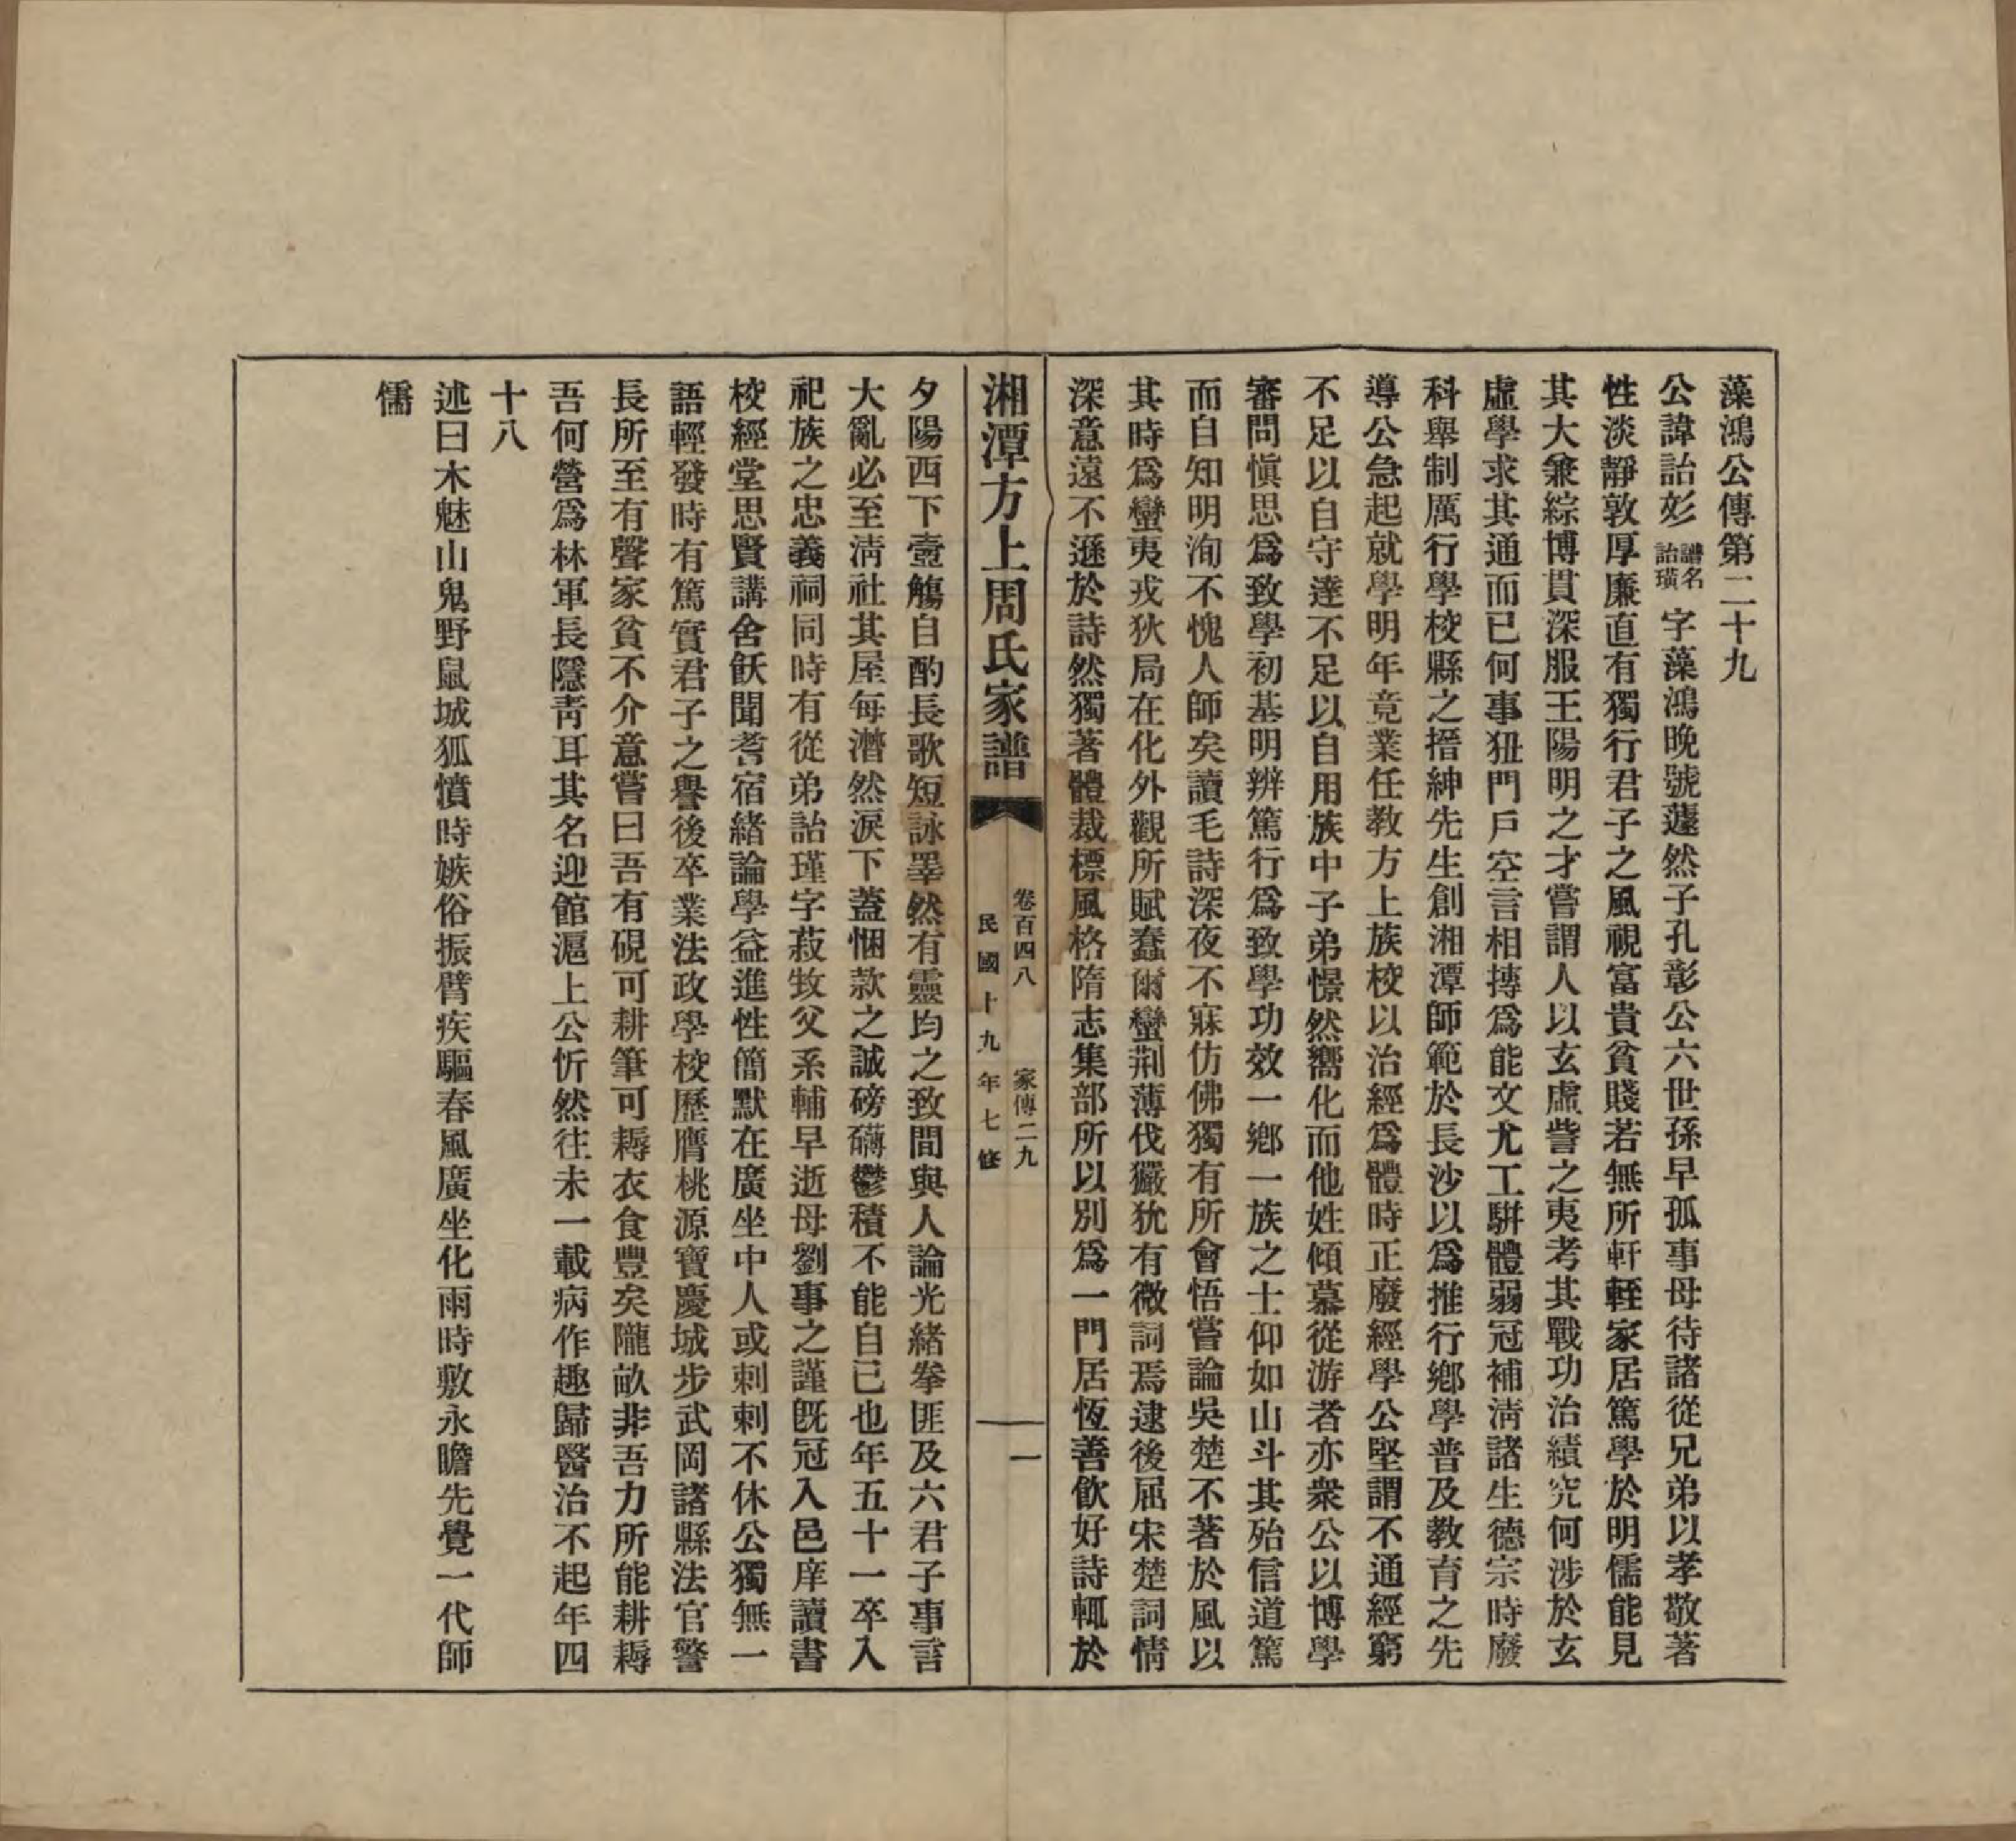 藻鴻公傳第二十九
公諱詒彣譜名詒璜字藻鴻晚號蘧然子孔彰公六世孫早孤事母待諸從兄弟以孝敬著
性淡靜敦厚廉直有獨行君子之風視富貴貧賤若無所軒輊家居篤學於明儒能見
其大兼綜博貫深服王陽明之才嘗謂人以玄虛訾之夷考其戰功治績究何涉於玄
虛學求其通而已何事狃門戶空言相摶爲能文尤工駢體弱冠補淸諸生德宗時廢
科舉制厲行學校縣之搢紳先生創湘潭師範於長沙以爲推行鄉學普及教育之先
導公急起就學明年竟業任教方上族校以治經爲體時正廢經學公堅謂不通經窮
不足以自守達不足以自用族中子弟憬然嚮化而他姓傾慕從游者亦衆公以博學
審問愼思爲致學初基明辨篤行爲致學功效一鄉一族之士仰如山斗其殆信道篤
而自知明洵不愧人師矣讀毛詩深夜不寐仿佛獨有所會悟嘗論吳楚不著於風以
其時爲蠻夷戎狄局在化外觀所賦蠢爾蠻荆薄伐玁狁有微詞焉逮後屈宋楚詞情
深意遠不遜於詩然獨著體裁標風格隋志集部所以別爲一門居恆善飮好詩輒於
湘潭方上周氏家譜
卷百四八 家傳二九
民國十九年七修
一
夕陽西下壺觴自酌長歌短詠睪然有靈均之致間與人論光緖拳匪及六君子事言
大亂必至淸社其屋每潸然涙下蓋悃款之誠磅礴鬱積不能自已也年五十一卒入
祀族之忠義祠同時有從弟詒瑾字菽牧父系輔早逝母劉事之謹旣冠入邑庠讀書
校經堂思賢講舍飫聞耆宿緖論學益進性簡默在廣坐中人或刺刺不休公獨無一
語輕發時有篤實君子之譽後卒業法政學校歷膺桃源寶慶城步武岡諸縣法官警
長所至有聲家貧不介意嘗曰吾有硯可耕筆可耨衣食豐矣隴畝非吾力所能耕耨
吾何營爲林軍長隱靑耳其名迎館滬上公忻然往未一載病作趣歸醫治不起年四
十八
述曰木魅山鬼野鼠城狐憤時嫉俗振臂疾驅春風廣坐化雨時敷永瞻先覺一代師
儒